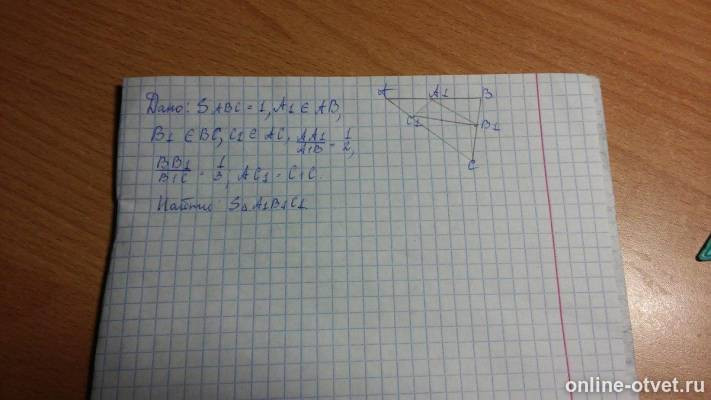 Дано: S ABC = 1, A1 ∈ AB,
B1 ∈ BC, C1 ∈ AC, AA1/A1B = 1/2,
BB1/B1C = 1/3, AC1 = C1C.
Найти: S△A1B1C1
A A1 B
C1 B1
C
online-otvet.ru